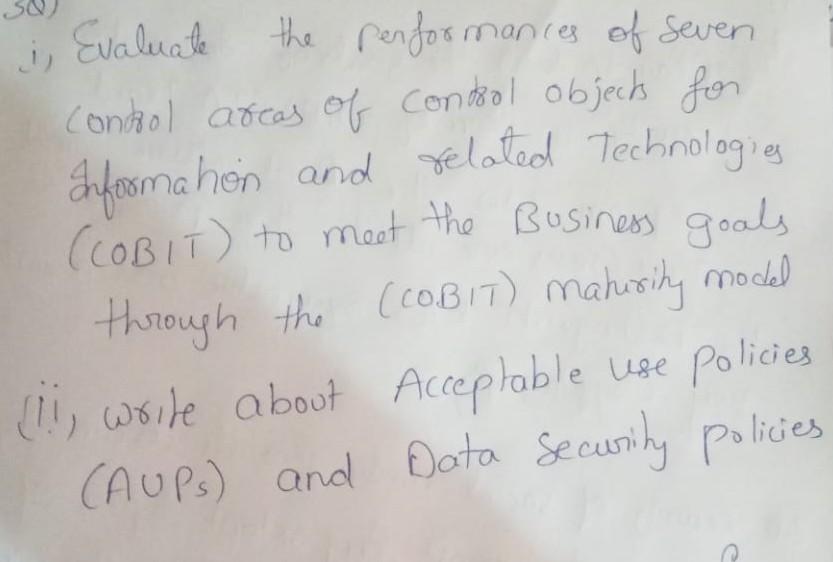 50)
i, Evaluate the performances of seven
control areas of control objects for
Information and related Technologies
(COBIT) to meet the Business goals
through the (COBIT) maturity model
(ii, write about Acceptable use policies
(AUPs) and Data security policies